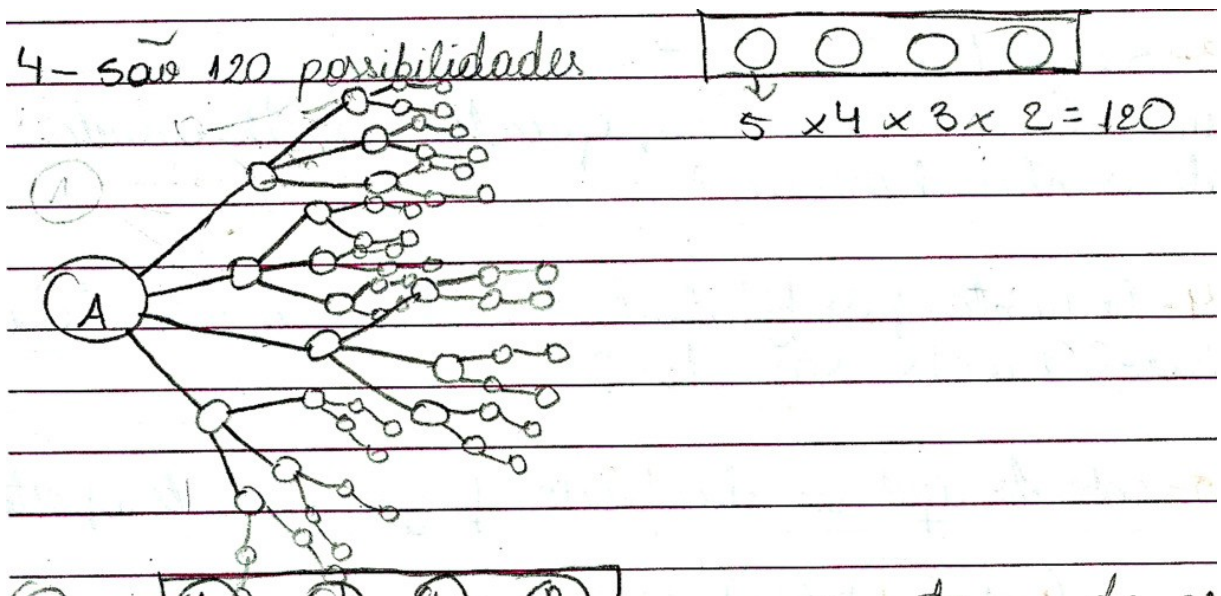 4- são 120 possibilidades
5 x4 x 3 x 2 = 120
A